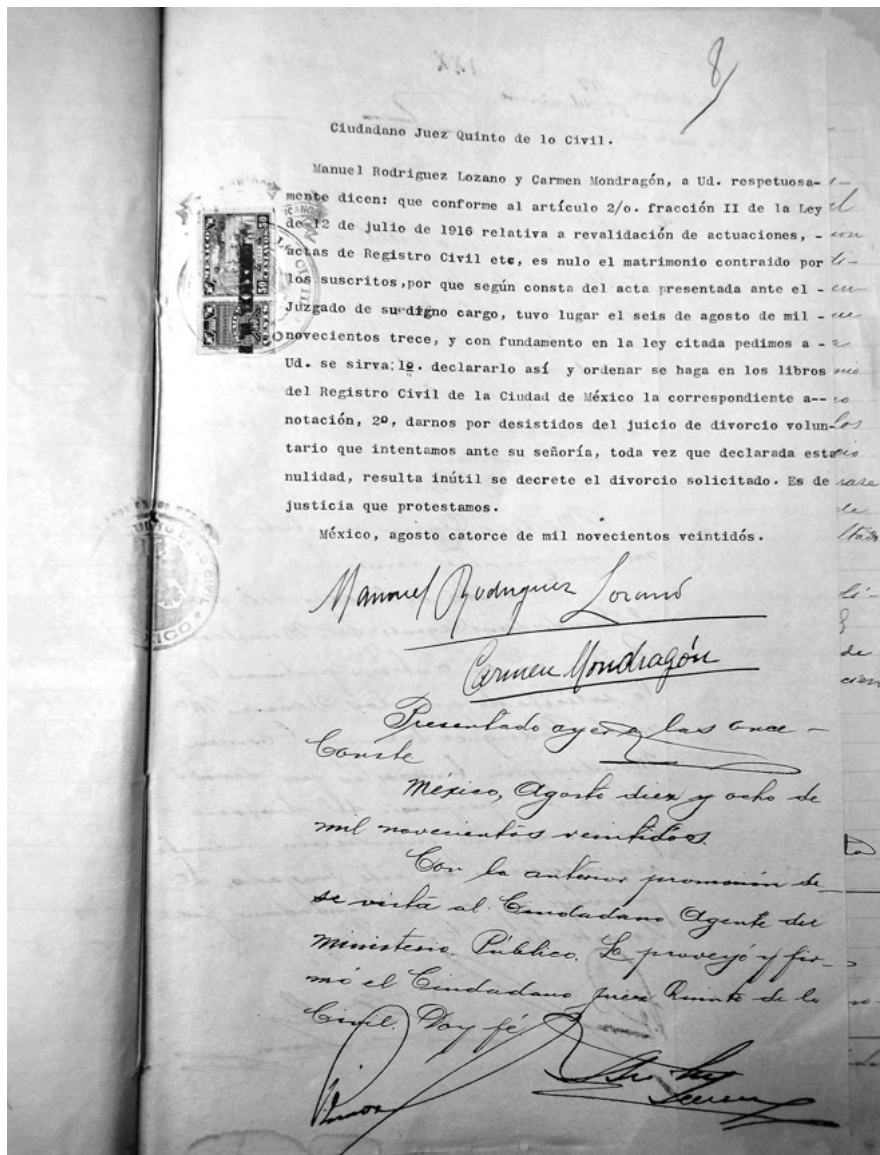 8
Ciudadano Juez Quinto de lo Civil.
Manuel Rodriguez Lozano y Carmen Mondragón, a Ud. respetuosa-
mente dicen: que conforme al artículo 2/o. fracción II de la Ley
de 12 de julio de 1916 relativa a revalidación de actuaciones, -
actas de Registro Civil etc, es nulo el matrimonio contraido por
los suscritos,por que según consta del acta presentada ante el -
Juzgado de su digno cargo, tuvo lugar el seis de agosto de mil -
novecientos trece, y con fundamento en la ley citada pedimos a -
Ud. se sirva:1º. declararlo así y ordenar se haga en los libros
del Registro Civil de la Ciudad de México la correspondiente a--
notación, 2º, darnos por desistidos del juicio de divorcio volun-
tario que intentamos ante su señoría, toda vez que declarada esta
nulidad, resulta inútil se decrete el divorcio solicitado. Es de
justicia que protestamos.
México, agosto catorce de mil novecientos veintidós.
Manuel Rodriguez Lozano
Carmen Mondragón
Presentado ayer a las once -
Conste
México, Agosto diez y ocho de
mil novecientos veintidos.
Con la anterior promoción de-
se vista al Ciudadano Agente del
Ministerio Público. Lo proveyó y fir-
mó el Ciudadano Juez Quinto de lo
Civil. Doy fé